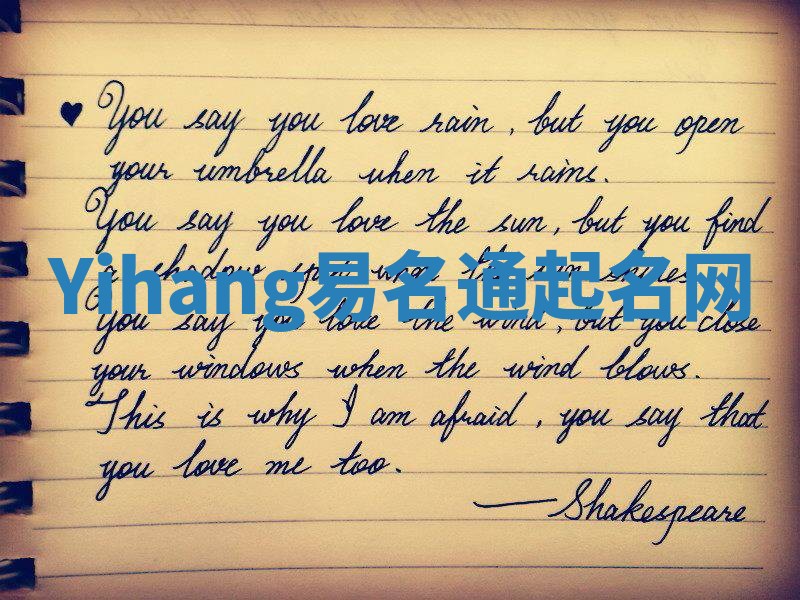 ♥ You say you love rain, but you open
your umbrella when it rains.
You say you love the sun, but you find
a shadow spot when the sun shines.
Yihang易名通起名网
You say you love the wind, but you close
your windows when the wind blows.
This is why I am afraid, you say that
you love me too.
—Shakespeare